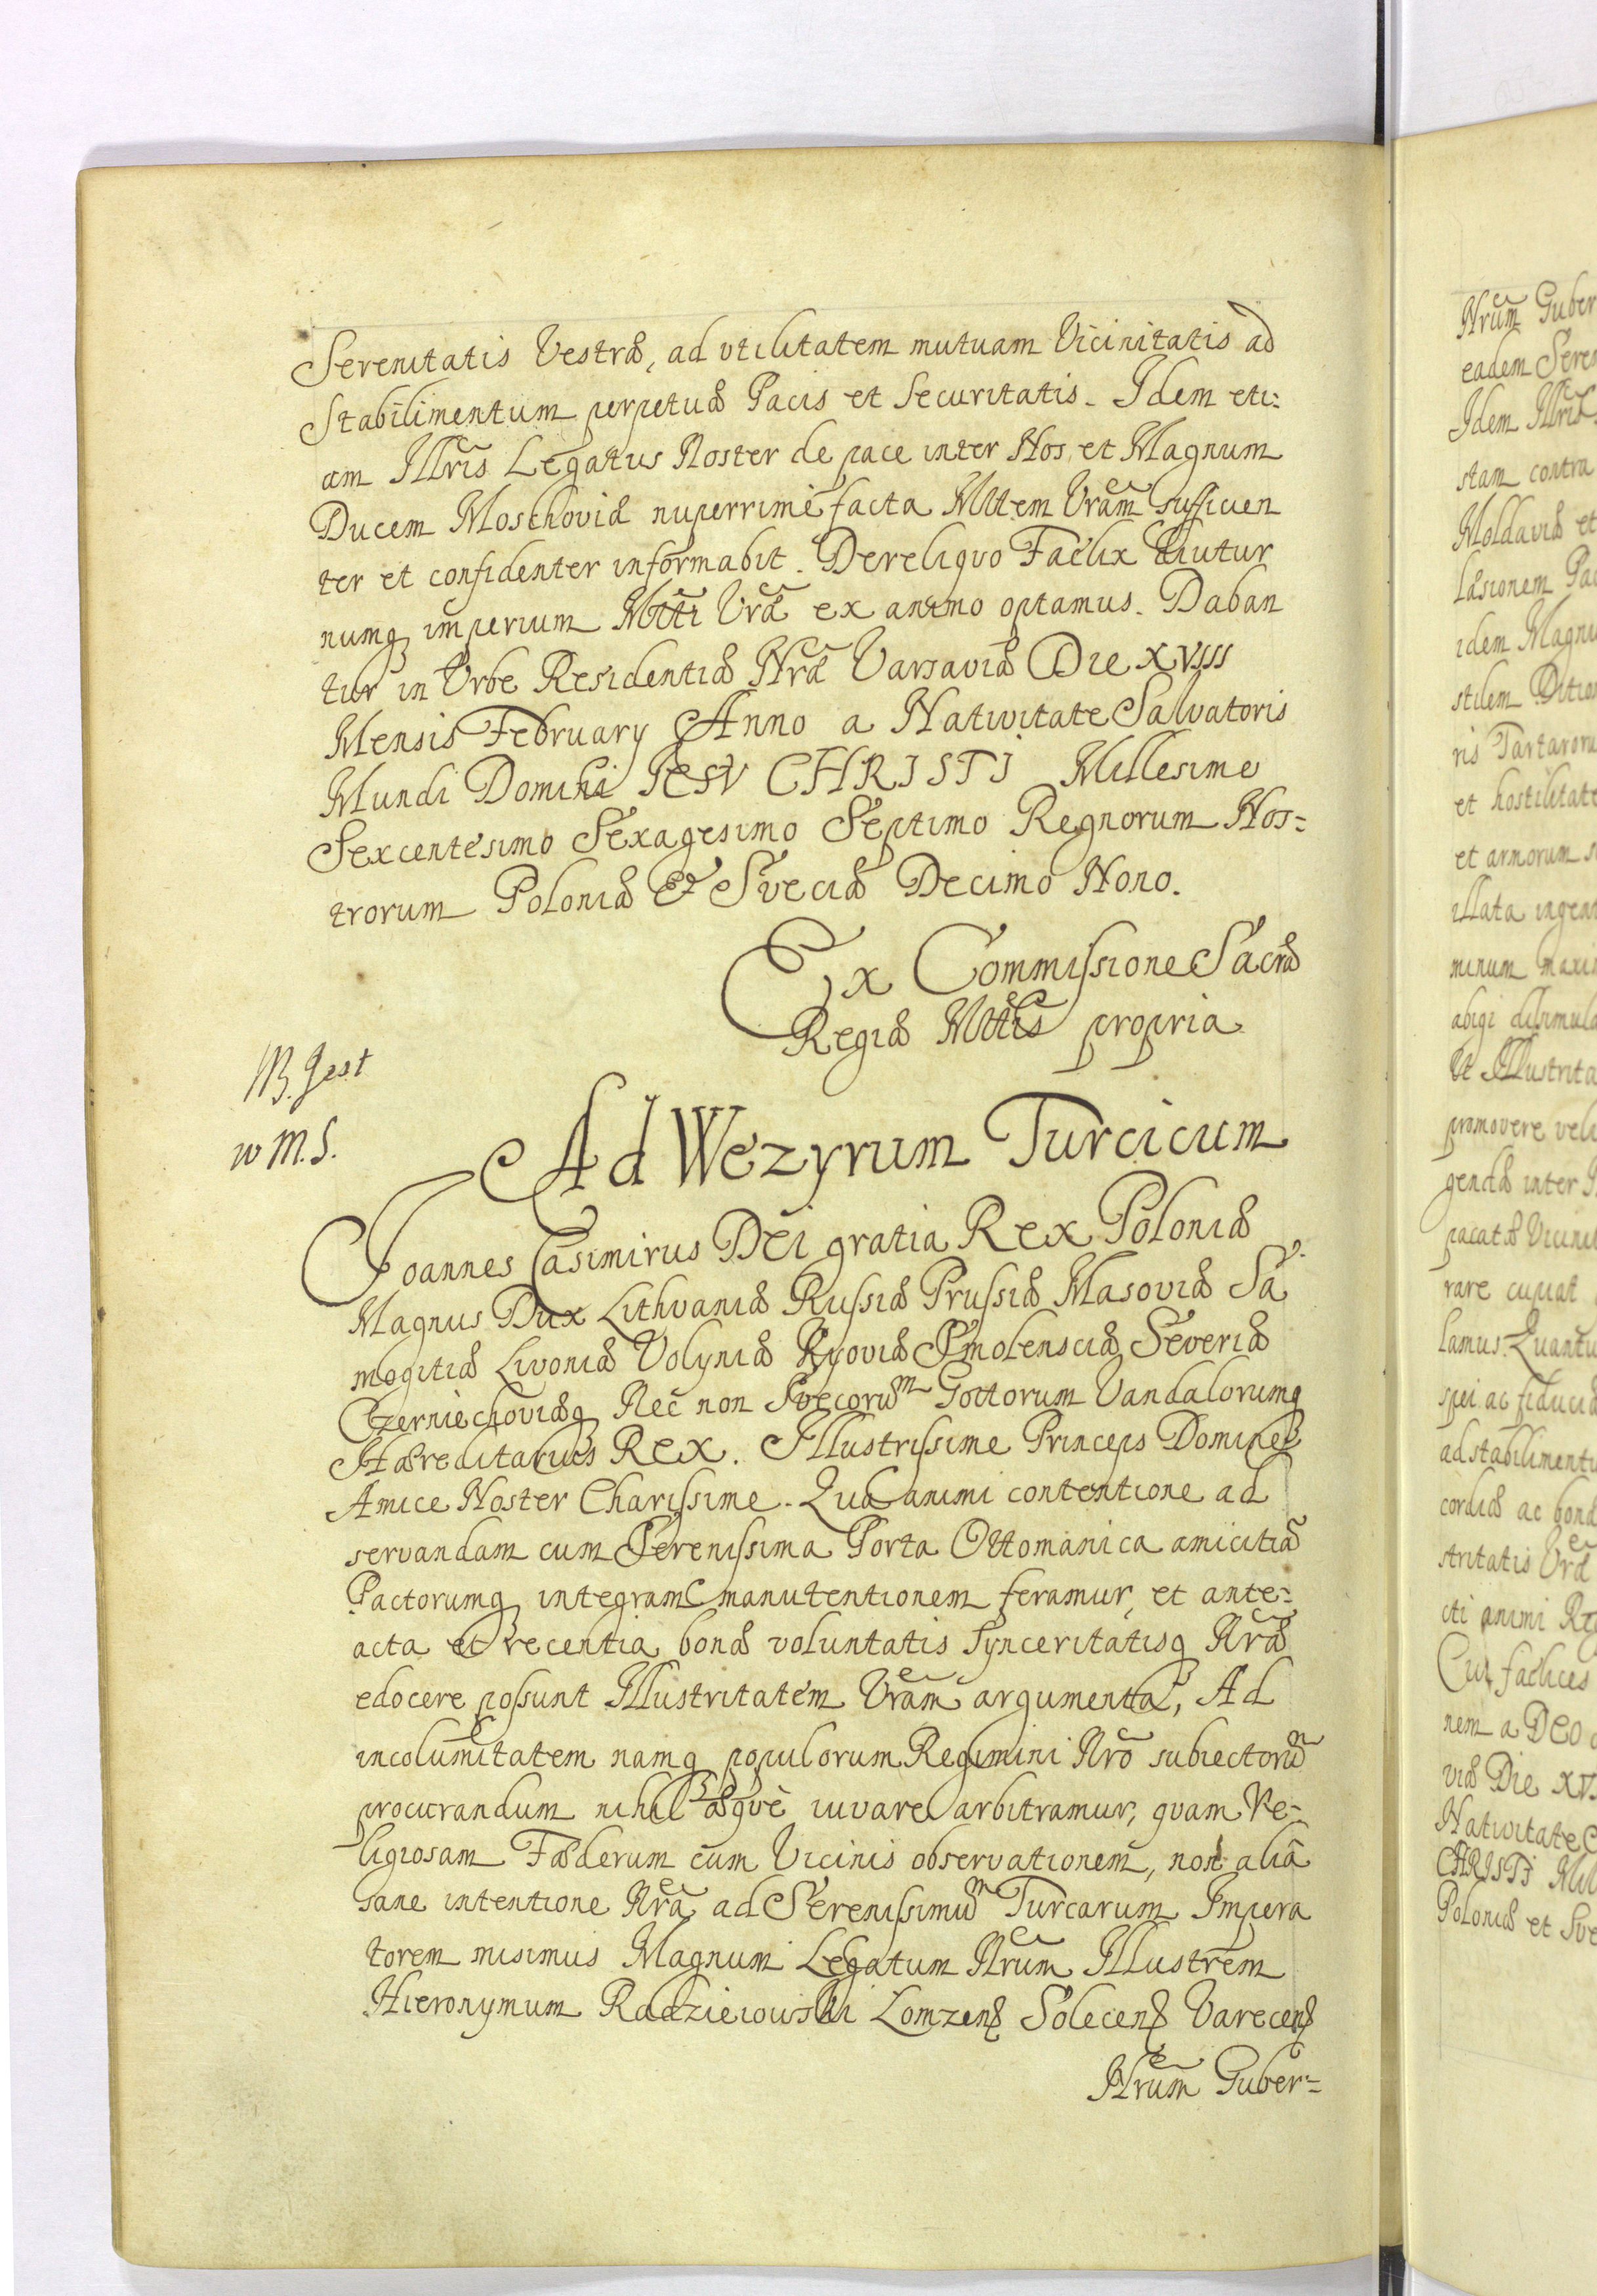 Serenitatis Vestræ, ad vtilitatem mutuam Vicinitatis ad
Stabilimentum perpetuæ Pacis et Securitatis. Idem eti=
am Illris Legatus Noster de pace inter Nos et Magnum
Ducem Moschoviæ nuperrimè facta Mttem Vram sufficien
ter et confidenter informabit. Dereliquo Fælix Diutur
numq imperium Mtti Vræ ex animo optamus. Daban
tur in Vrbe Residentiæ Nræ Varsaviæ Die XVIII
Mensis February Anno a Nativitate Salvatoris
Mundi Domini IESV CHRISTI Millesimo
Sexcentesimo Sexagesimo Septimo Regnorum Nos=
trorum Poloniæ et Sveciæ Decimo Nono.
Ex Commissione Sacræ
Regiæ Mttis propria
NB. Jest
w M.S.
Ad Wezyrum Turcicum
Joannes Casimirus Dei gratia Rex Poloniæ
Magnus Dux Lithvaniæ Russiæ Prussiæ Masoviæ Sa
mogitiæ Livoniæ Volyniæ Kyoviæ Smolensciæ Severiæ
Czerniechoviæq Nec non Svecorum Gottorum Vandalorumq
Hæreditarius Rex. Illustrissime Princeps Domine
Amice Noster Charissime. Qua animi contentione ad
servandam cum Serenissima Porta Ottomanica amicitiã
Pactorumq integram manutentionem feramur, et ante=
acta et recentia bonæ voluntatis Synceritatisq Nræ
edocere possunt Illustritatem Vram argumenta, Ad
incolumitatem namq populorum Regimini Nro subiectorum
procurandum nihil æquè iuvare arbitramur, quam Re=
ligiosam Fæderum cum Vicinis observationem, non aliâ
sane intentione Nra ad Serenissimum Turcarum Impera
torem misimus Magnum Legatum Nrum Illustrem
Hieronymum Radzieiowski Lomzens Solecens Varecens
Nrum Guber=
Nrum Guber
eadem Seren
Idem Illris
stam contra
Moldaviæ et
læsionem Pa
idem Magnu
stilem Ditio
ris Tartaroru
et hostilitate
et armorum s
illata ingen
minum maxi
abigi dissimula
Ut Illustrita
promovere veli
gendæ inter
pacatæ Vicini
rare cupiat
lamus. Quantu
spei ac fiduciæ
ad stabilimentu
cordiæ ac bonæ
stritatis Vræ
cti animi Re
Cui fælices
nem a DEO
viæ Die XV
Nativitate
CHRISTI Mil
Poloniæ et Sve